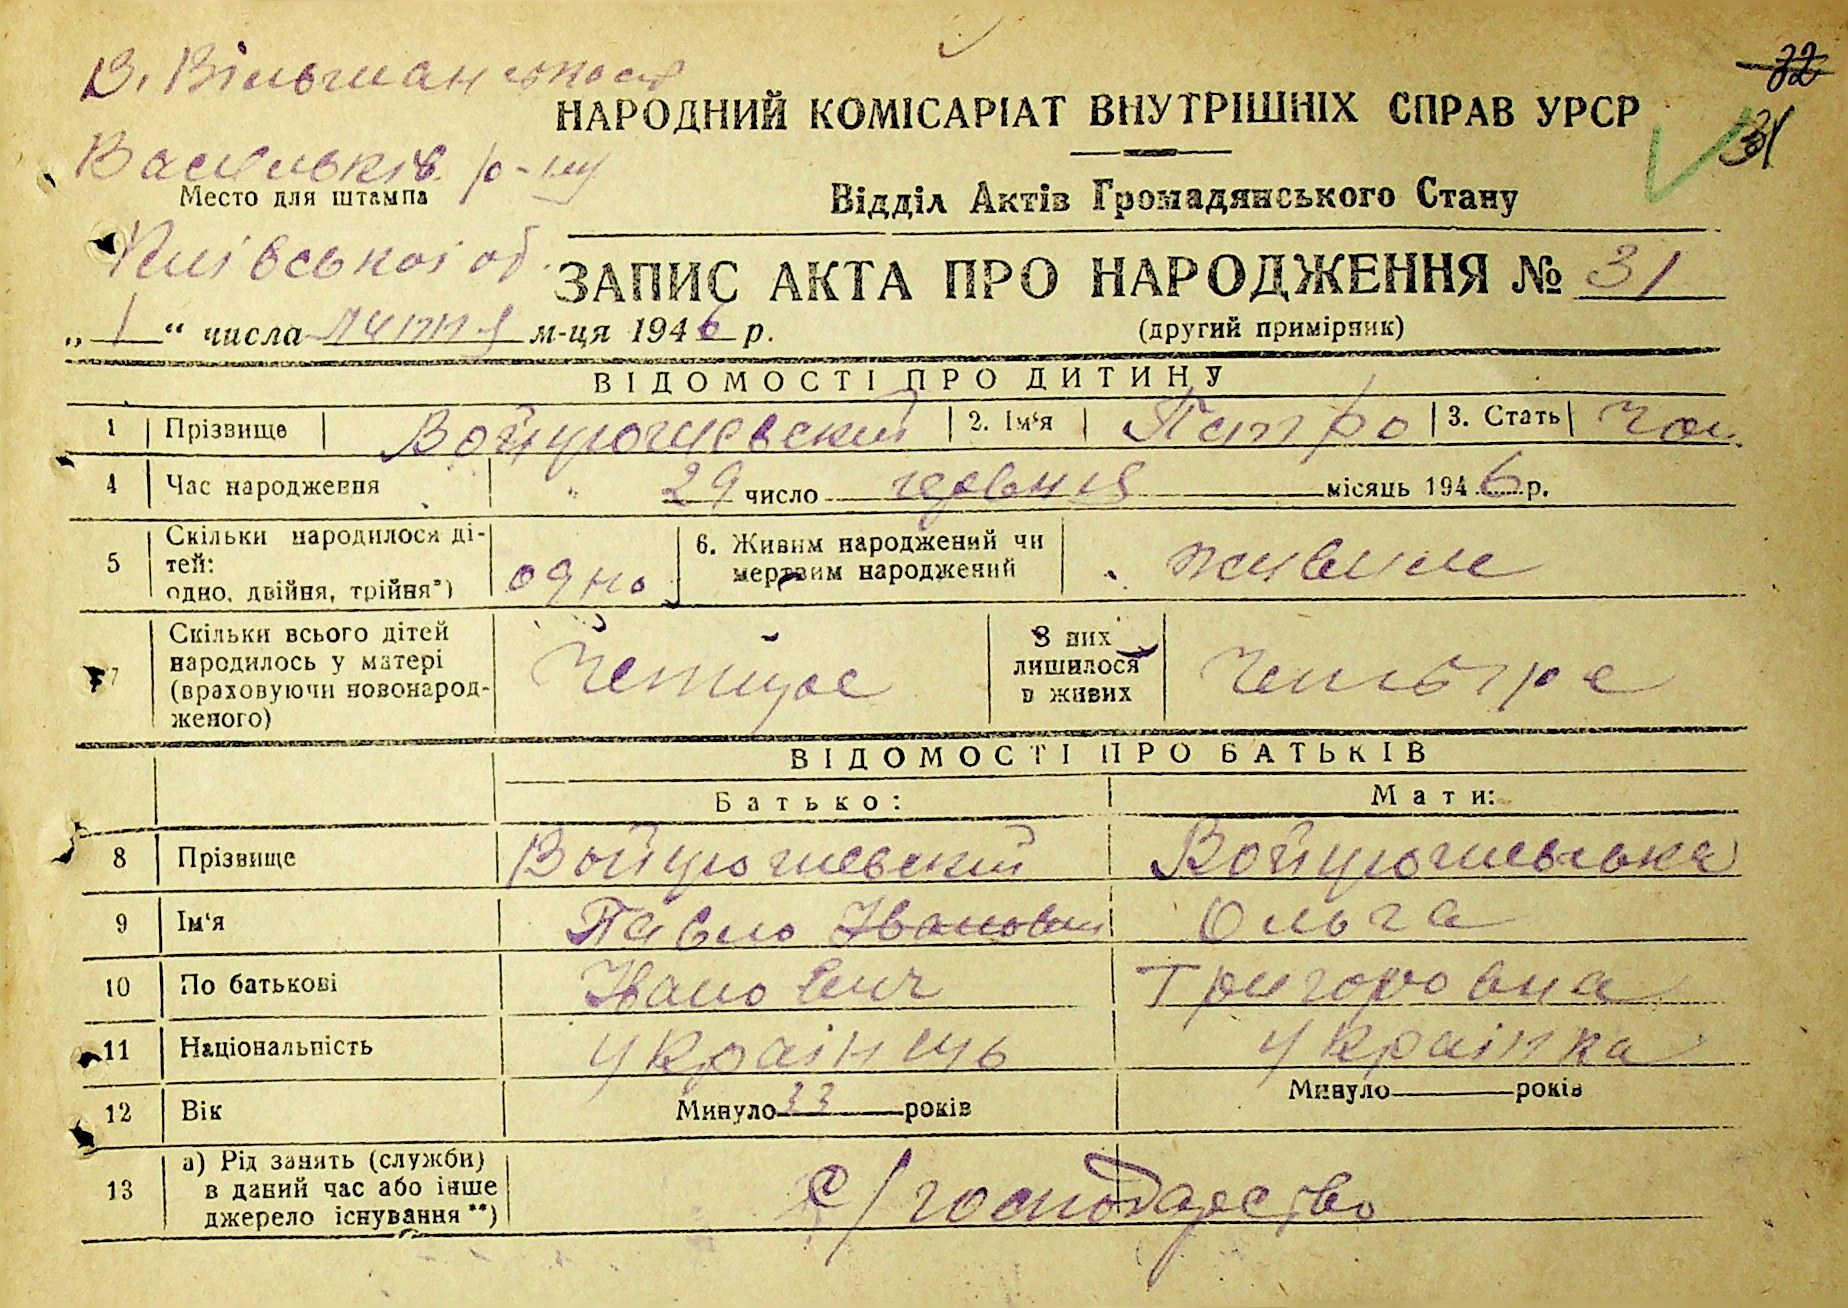 В. Вільшанської
НАРОДНИЙ КОМІСАРІАТ ВНУТРІШНІХ СПРАВ УРСР
32
31
Васильків. р-ну
Место для штампа
Відділ Актів Громадянського Стану
Київської об.
ЗАПИС АКТА ПРО НАРОДЖЕННЯ № 31
„ 1 “ числа липня м-ця 1946 р.
(другий примірник)
ВІДОМОСТІ ПРО ДИТИНУ
1 Прізвище 2. Ім‘я Петро 3. Стать Чол.
4 Час народження „ 29 число червня місяць 1946 р.
5 Скільки народилося ді-
тей:
одно, двійня, трійня*) одно
6. Живим народжений чи
мертвим народжений живим
7 Скільки всього дітей
народилось у матері
(враховуючи новонарод-
женого) Четыре
З них
лишилося
в живих Четыре
ВІДОМОСТІ ПРО БАТЬКІВ
Батько: Мати:
8 Прізвище
9 Ім‘я Павло Іванович Ольга
10 По батькові Іванович Григоровна
11 Національність Українець Українка
12 Вік Минуло 33 років Минуло років
13 а) Рід занять (служби)
в даний час або інше
джерело існування**) с/господарство